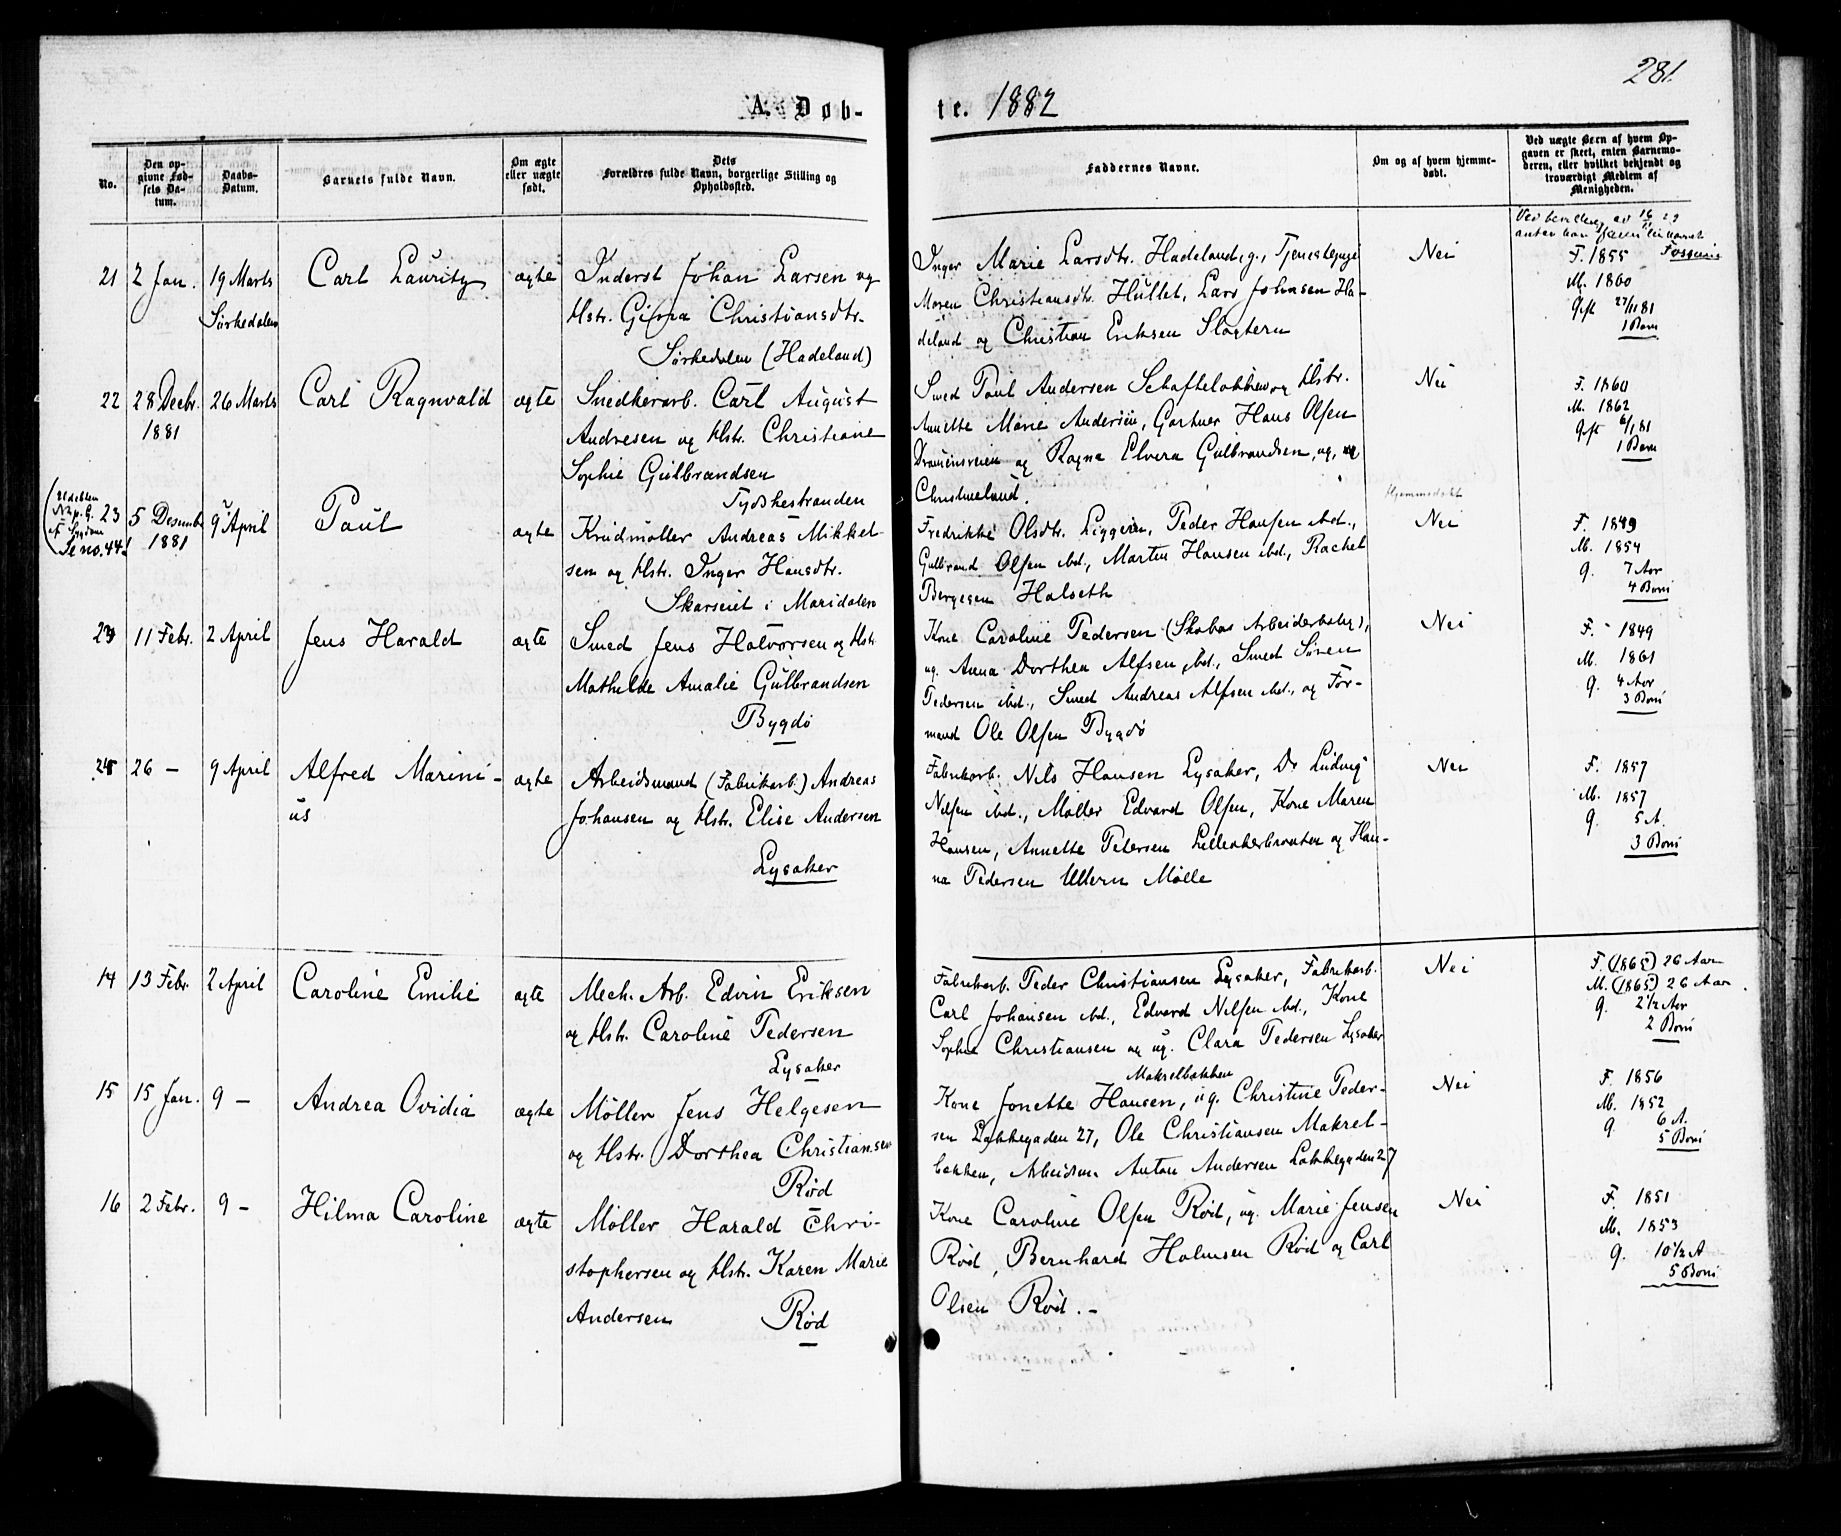 281.
A. Døb-
te. 1882
No.
Den op-
givne Fød-
sels Da-
tum.
Daabs-
Datum.
Barnets fulde Navn.
Om ægte
eller uægte
født.
Dets
Forældres fulde Navn, borgerlige Stilling og
Opholdssted.
Faddernes Navne.
Om og af hvem hjemme-
døbt.
Ved uægte Børn af hvem Op-
gaven er skeet, enten Barnemo-
deren, eller hvilket bekjendt og
troværdigt Medlem af
Menigheden.
21 2 Jan. 19 Marts Carl Lauritz ægte Inderst Johan Larsen og
Sørkedalen Hstr. Gina Christiansdtr.
Sørkedalen (Hadeland)
Inger Marie Larsdtr. Hadeland, g., Tjenestepige
Maren Christiansdtr. Hullet, Lars Johnsen Ha-
deland og Christian Eriksen Slagtern
Nei
Ved bevilling av
F. 1855
M. 1860
Gift 27/11 81
1 Barn
22 28 Decbr. 26 Marts Carl Ragnvald ægte Snedkerarb. Carl August
1881 Andresen og Hstr. Christiane
Sophie Gulbrandsen
Tydskestranden
Smed Paul Andersen Skafteløkken og Hstr.
Annette Marie Andersen, Gartner Hans Olsen
Dramensveien og Ragna Elvera Gulbrandsen, ug.
Christinelund.
Nei
F. 1860
M. 1862
Gift 6/1 81
1 Barn
23 5 Desemb. 9 April Paul ægte Krudmøller Andreas Mikkel-
1881 sen og Hstr. Inger Hansdtr.
Se no. 44!
Skarseiet i Maridalen
Fredrikke Olsdtr. Liggern, Peder Hansen ibd.,
Gulbrand Olsen ibd., Martin Hansen ibd., Rachel
Bergesen Halseth
Hjemmedøbt
Nei
F. 1849
M. 1854
g. 7 Aar
4 Børn
24 11 Febr. 2 April Jens Harald ægte Smed Jens Halvorsen og Hstr.
Mathilde Amalie Gulbrandsen
Bygdø
Kone Caroline Pedersen (Skabos Arbeiderbolig),
ug. Anna Dorthea Alfsen ibd., Smed Søren
Pedersen ibd., Smed Andreas Alfsen ibd., og For-
mand Ole Olsen Bygdø
Nei
F. 1849
M. 1861
g. 4 Aar
3 Børn
25 26 — 9 April Alfred Marini- ægte Arbeidsmand (Fabrikarb.) Andreas
us Johansen og Hstr. Elise Andersen
Lysaker
Fabrikarb. Nils Hansen Lysaker, Do Ludvig
Nilsen ibd., Møller Edvard Olsen, Kone Maren
Hansen, Annette Petersen Lilleakerbraaten og Han-
na Pedersen Ullern Mølle
Nei
F. 1857
M. 1857
g. 5 A.
3 Børn
14 13 Febr. 2 April Caroline Emilie ægte Mech. Arb. Edvin Eriksen
og Hstr. Caroline Pedersen
Lysaker
Fabrikarb. Peder Christiansen Lysaker, Fabrikarb.
Carl Johansen ibd., Edvard Nilsen ibd., Kone
Sophie Christiansen og ug. Clara Pedersen Lysaker
Nei
F. (1865) 26 Aar
M. (1865) 26 Aar.
g. 2½ Aar
2 Børn
15 15 Jan. 9 — Andrea Ovidia ægte Møller Jens Helgesen
og Hstr. Dorthea Christiansen
Rød
Makrelbækken
Kone Jonette Hansen, ug. Christine Peder-
sen Lakkegaden 27, Ole Christiansen Makrel-
bækken, Arbeidsm. Anton Andersen Lakkegaden 27
Nei
F. 1856
M. 1852
g. 6 A.
5 Børn
16 2 Febr. 9 — Hilma Caroline ægte Møller Harald Chri-
stophersen og Hstr. Karen Marie
Andersen Rød
Kone Caroline Olsen Rød, ug. Marie Jensen
Rød, Bernhard Halmsen Rød og Carl
Olsen Rød. —
Nei
F. 1851
M. 1853
g. 10½ A
5 Børn